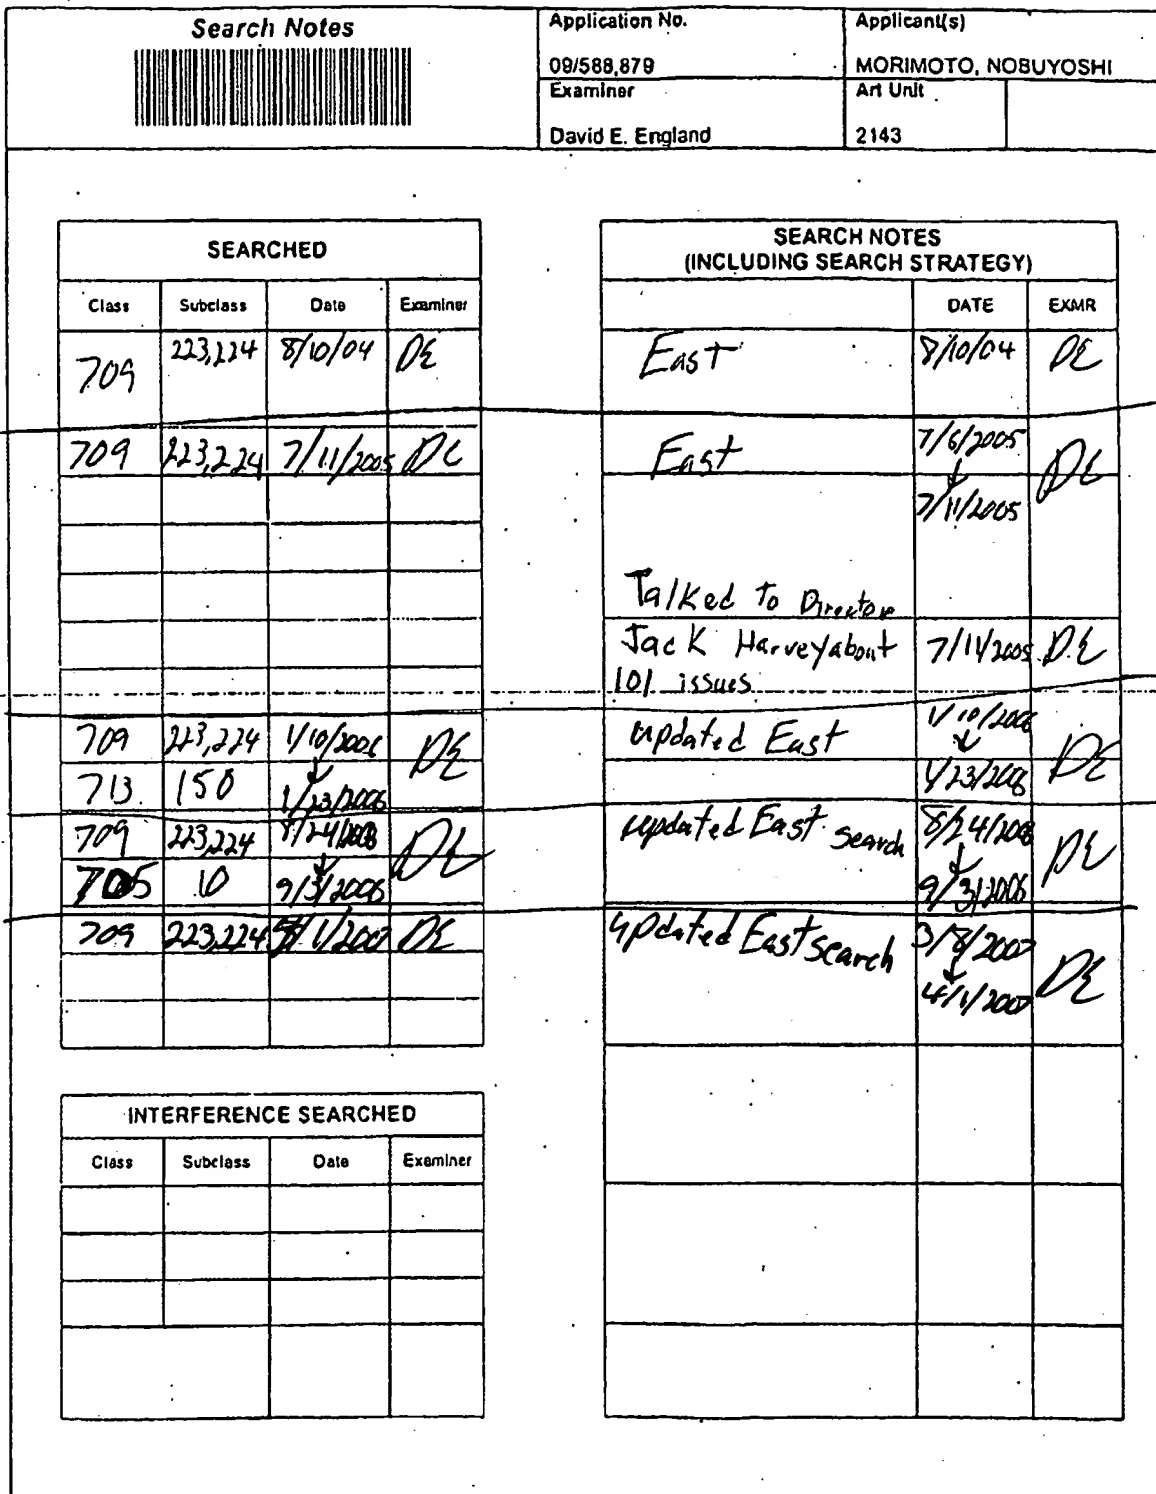 Search Notes
Application No.
Applicant(s)
09/588,879
MORIMOTO, NOBUYOSHI
Examiner
Art Unit
David E. England
2143
SEARCHED
Class Subclass Date Examiner
709 223,224 8/10/04 DE
709 223,224 7/11/2005 DE
709 223,224 1/10/2006 DE
713 150 1/23/2006
709 223,224 8/24/2006 DE
705 10 9/3/2006
709 223,224 4/1/2007 DE
INTERFERENCE SEARCHED
Class Subclass Date Examiner
SEARCH NOTES
(INCLUDING SEARCH STRATEGY)
DATE EXMR
East 8/10/04 DE
East 7/6/2005 DE
7/11/2005
Talked to Director
Jack Harvey about 7/14/2005 D.E
101 issues
updated East 1/10/2006 DE
1/23/2006
updated East search 8/24/2006 DE
9/3/2006
updated East search 3/8/2007 DE
4/1/2007